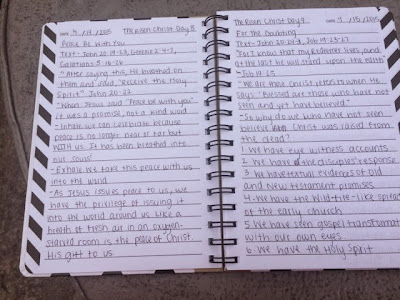 9/14/2015 The Risen Christ Day 8
Peace Be With You
Text - John 20:19-23,
Galatians 5:16-26
"After saying this, He breathed on
them and said, "Receive the Holy
Spirit" John 20:22
- When Jesus said "Peace be with you"
it was a promise, not a kind word
- Inhale: we can celebrate because
peace is no longer near or far but
WITH us. It has been breathed into
our souls!
- Exhale: we take this peace with us
into the world
- As Jesus issues peace to us, we
have the privilege of issuing it
into the world around us. Like a
breath of fresh air in an oxygen-
starved room is the peace of Christ.
His gift to us
The Risen Christ Day 9 Date: 9/15/2015
For the Doubting
Text - John 20:24-29, Job 19:23-27
"For I know that my Redeemer lives, and
at the last he will stand upon the earth"
- Job 19:25
- We are then Christ refers to when He
says: "Blessed are those who have not
seen and yet have believed."
- So why do we who have not seen
believe Christ was raised from
the dead?
1. We have eye witness accounts
2. We have disciples' response
3. We have textual evidences of Old
and New Testament promises
4. We have the wild-fire-like spread
of the early church
5. We have seen gospel transformation
with our own eyes
6. We have the Holy Spirit